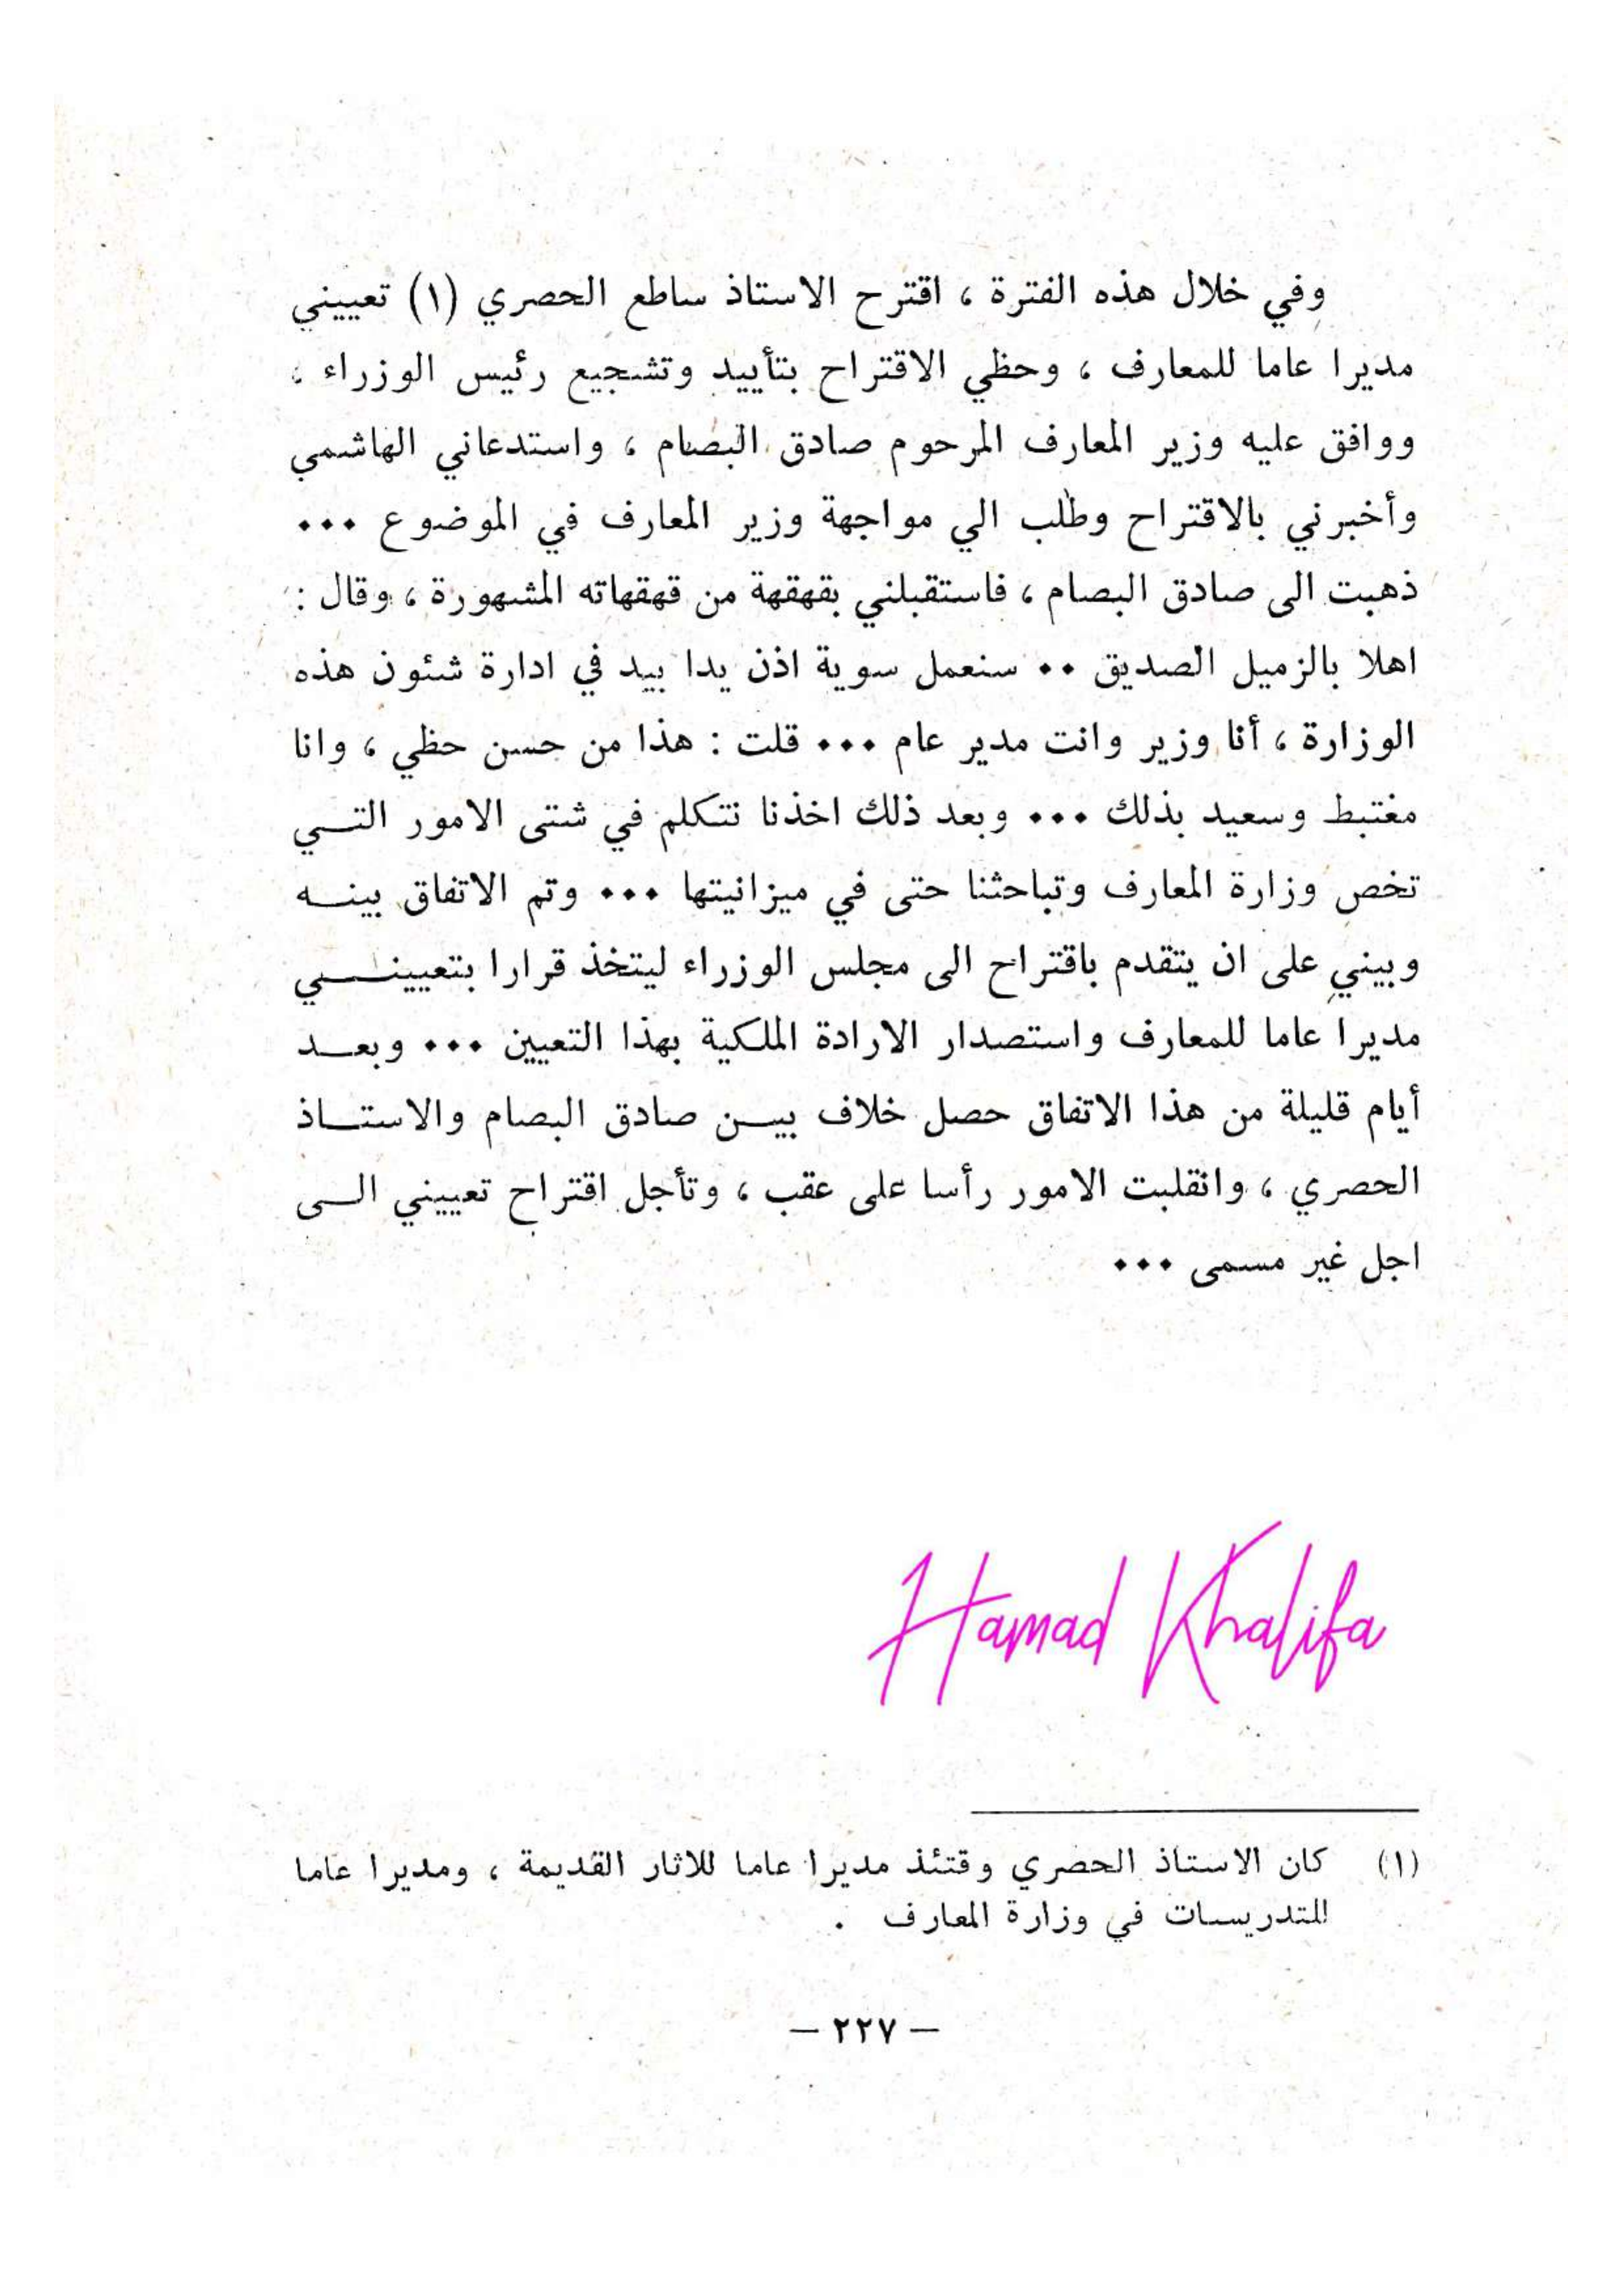 وفي خلال هذه الفترة ، اقترح الاستاذ ساطع الحصري (١) تعييني
مديرا عاما للمعارف ، وحظي الاقتراح بتأييد وتشجيع رئيس الوزراء ،
ووافق عليه وزير المعارف المرحوم صادق البصام ، واستدعاني الهاشمي
وأخبرني بالاقتراح وطلب الي مواجهة وزير المعارف في الموضوع ٠٠٠
ذهبت الى صادق البصام ، فاستقبلني بقهقهة من قهقهاته المشهورة ، وقال :
اهلا بالزميل الصديق ٠٠ سنعمل سوية اذن يدا بيد في ادارة شئون هذه
الوزارة ، أنا وزير وانت مدير عام ٠٠٠ قلت : هذا من حسن حظي ، وانا
مغتبط وسعيد بذلك ٠٠٠ وبعد ذلك اخذنا نتكلم في شتى الامور التـــي
تخص وزارة المعارف وتباحثنا حتى في ميزانيتها ٠٠٠ وتم الاتفاق بينــه
وبيني على ان يتقدم باقتراح الى مجلس الوزراء ليتخذ قرارا بتعيينــــي
مديرا عاما للمعارف واستصدار الارادة الملكية بهذا التعيين ٠٠٠ وبعــد
أيام قليلة من هذا الاتفاق حصل خلاف بيــن صادق البصام والاستــاذ
الحصري ، وانقلبت الامور رأسا على عقب ، وتأجل اقتراح تعييني الــى
اجل غير مسمى ٠٠٠
Hamad Khalifa
(١) كان الاستاذ الحصري وقتئذ مديرا عاما للاثار القديمة ، ومديرا عاما
للتدريسات في وزارة المعارف .
— ٢٢٧ —